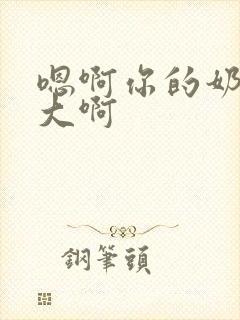 嗯啊你的奶
大啊
鋼筆頭